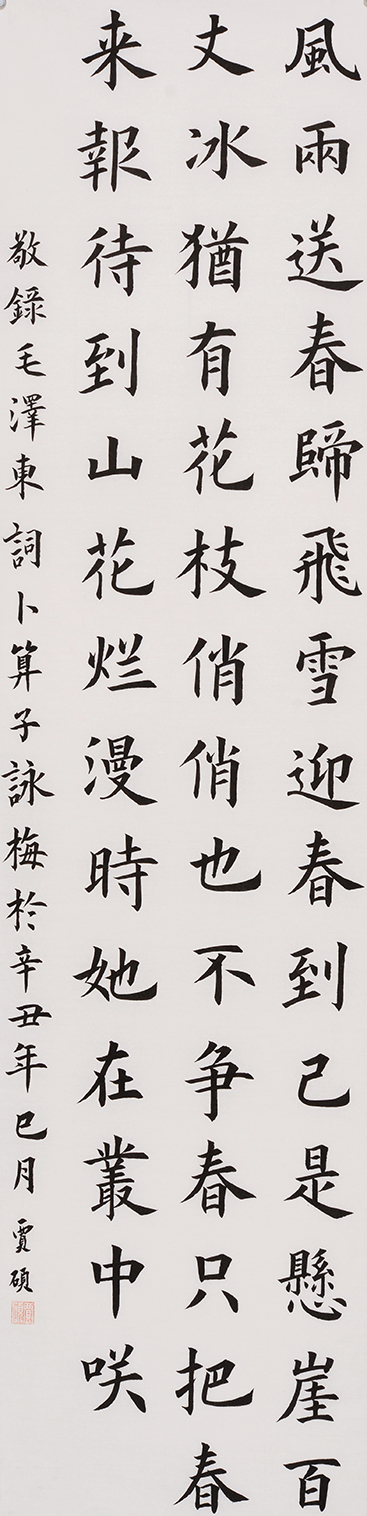 風雨送春歸飛雪迎春到已是懸崖百
丈冰猶有花枝俏俏也不争春只把春
来報待到山花烂漫時她在叢中咲
敬錄毛澤東詞卜算子詠梅於辛丑年巳月 賈碩